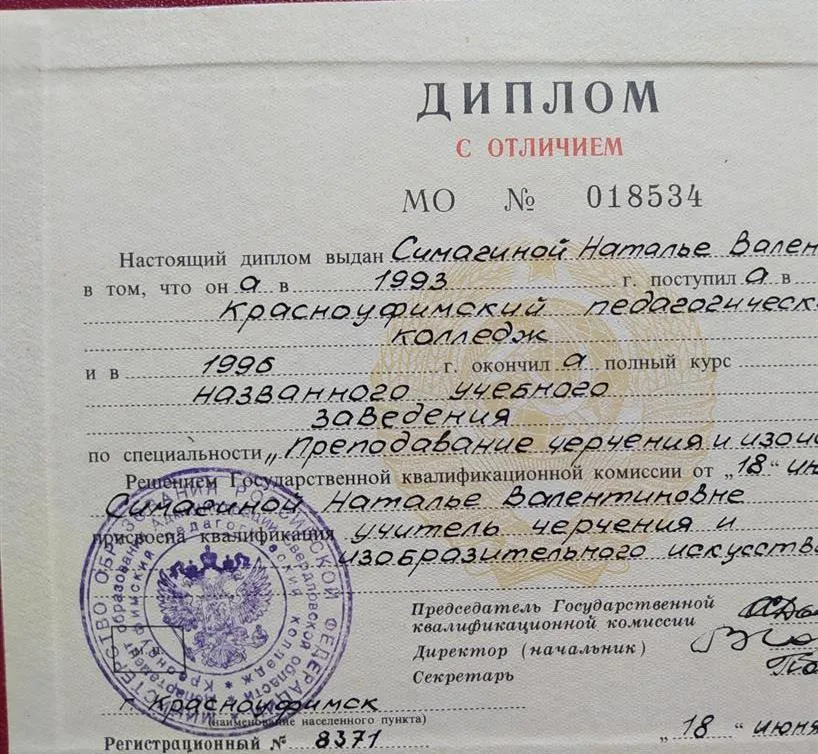 ДИПЛОМ
С ОТЛИЧИЕМ
МО № 018534
Настоящий диплом выдан Симагиной Наталье Вален
в том, что он а в 1993 г. поступил а в
Красноуфимский педагогическ
колледж
и в 1996 г. окончил а полный курс
названного учебного
заведения
по специальности „Преподавание черчения и изо
Решением Государственной квалификационной комиссии от „18“ ию
Симагиной Наталье Валентиновне
присвоена квалификация учитель черчения и
изобразительного искусств
Председатель Государственной
квалификационной комиссии
Директор (начальник)
Секретарь
МИНИСТЕРСТВО ОБРАЗОВАНИЯ РОССИЙСКОЙ ФЕДЕРАЦИИ
Красноуфимский педагогический колледж
г. Красноуфимск
(наименование населенного пункта)
„18“ июня
Регистрационный № 8371